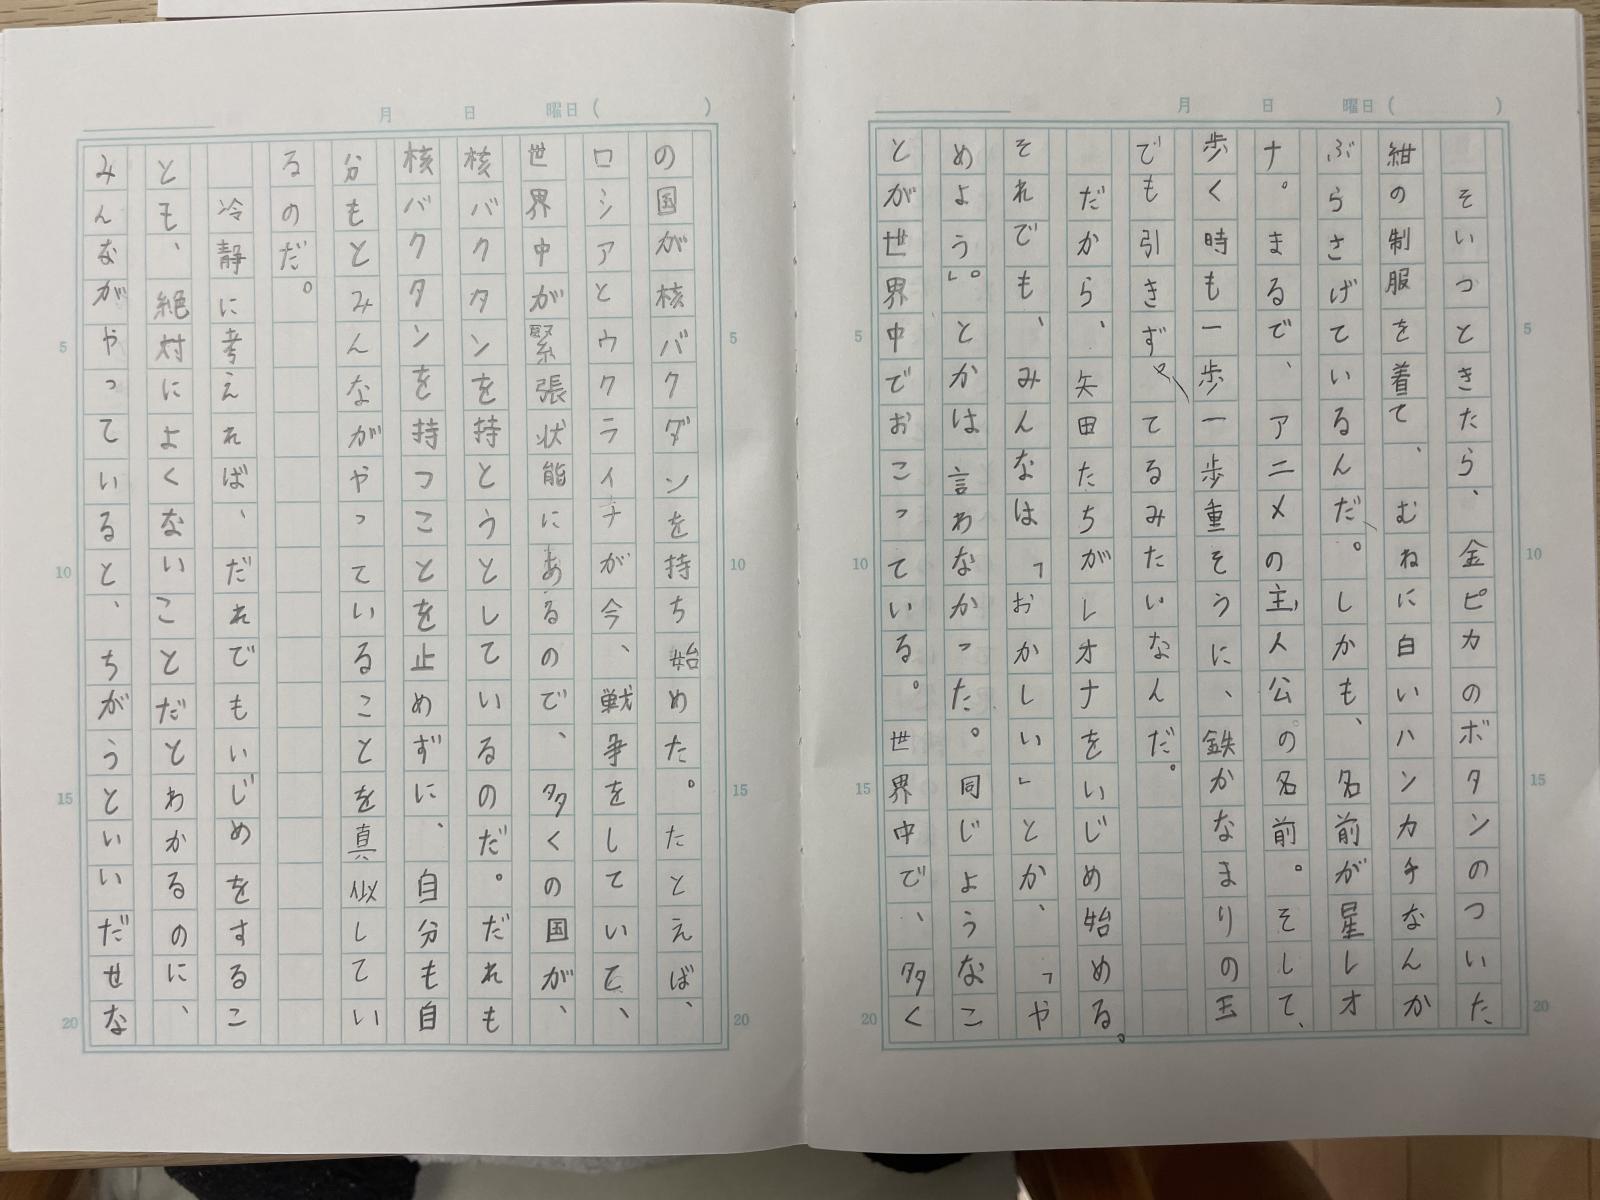 月　日　曜日（　　）
そいつときたら、金ピカのボタンのついた
紺の制服を着て、むねに白いハンカチなんか
ぶらさげているんだ。しかも、名前が星レオ
ナ。まるで、アニメの主人公の名前。そして、
歩く時も一歩一歩重そうに、鉄かなまりの玉
でも引きず。てるみたいなんだ。
だから、矢田たちがレオナをいじめ始める。
それでも、みんなは「おかしい」とか、「や
めよう」。とかは言わなかった。同じようなこ
とが世界中でおこっている。世界中で、多く
5
10
15
20
月　日　曜日（　　）
の国が核バクダンを持ち始めた。たとえば、
ロシアとウクライナが今、戦争をしていて、
世界中が緊張状能にあるので、多くの国が、
核バクタンを持とうとしているのだ。だれも
核バクタンを持つことを止めずに、自分も自
分もとみんながやっていることを真似してい
るのだ。
冷静に考えれば、だれでもいじめをするこ
とも、絶対によくないことだとわかるのに、
みんながやっていると、ちがうといいだせな
5
10
15
20